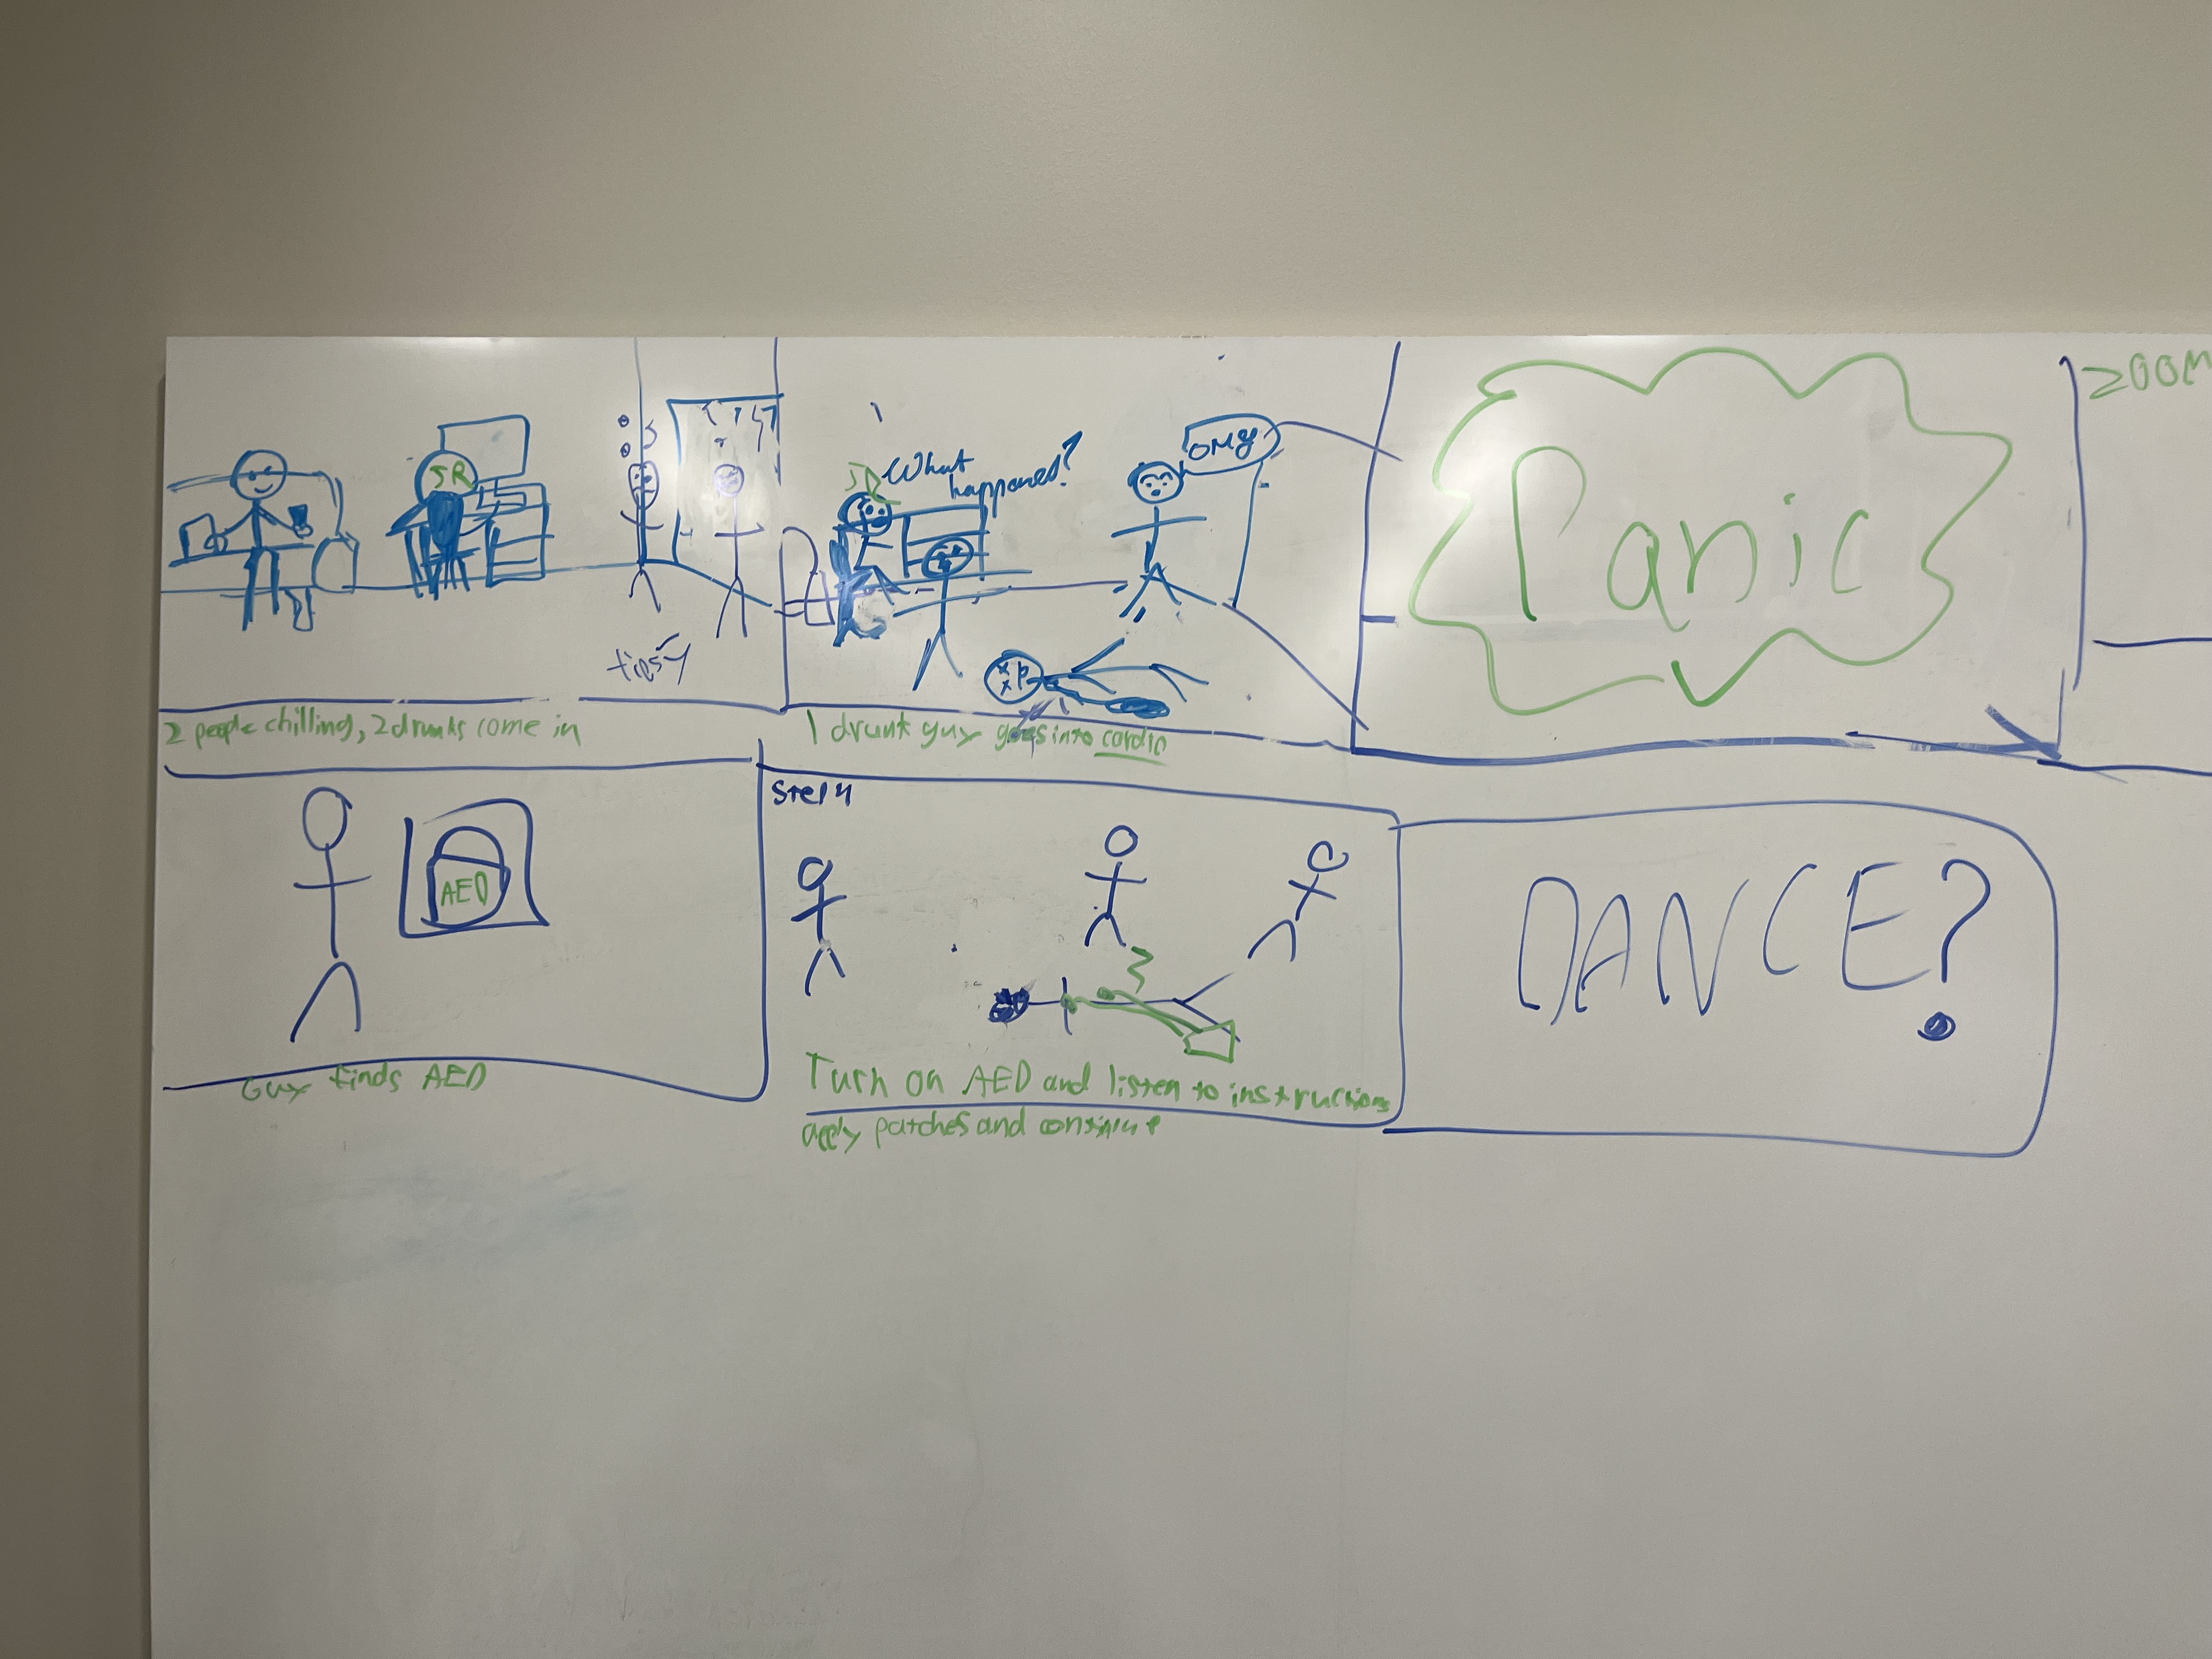 JR
tipsy
2 people chilling, 2 drunks come in
What
happened?
OMG
1 drunk guy goes into cardio
Panic
AED
Guy finds AED
Step 4
Turn on AED and listen to instructions
apply patches and continue
DANCE?